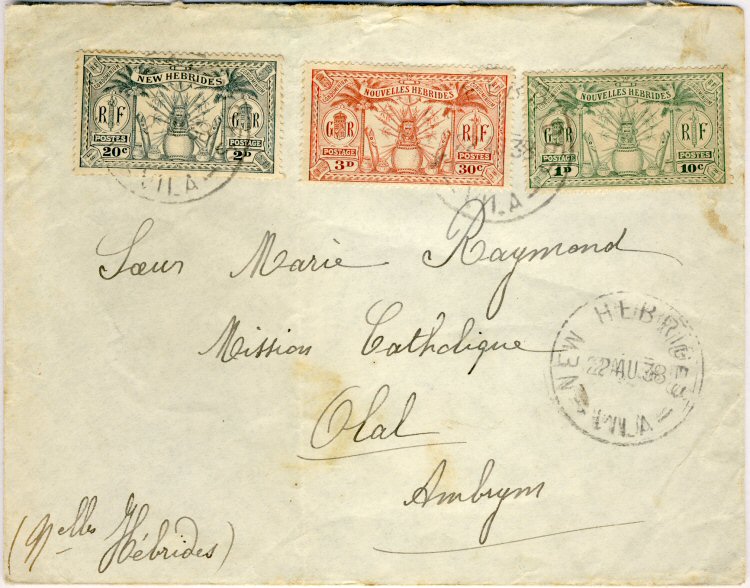 NEW HEBRIDES
R F
G R
POSTES
POSTAGE
20c
2D
NOUVELLES HÉBRIDES
G R
R F
POSTAGE
POSTES
3D
30c
NOUVELLES HÉBRIDES
G R
R F
POSTAGE
POSTES
1D
10c
VILA
VILA
Sœur Marie Raymond
Mission Catholique
Olal
Ambrym
(Nelles Hébrides)
NEW HEBRIDES
22 AU 38
VILA